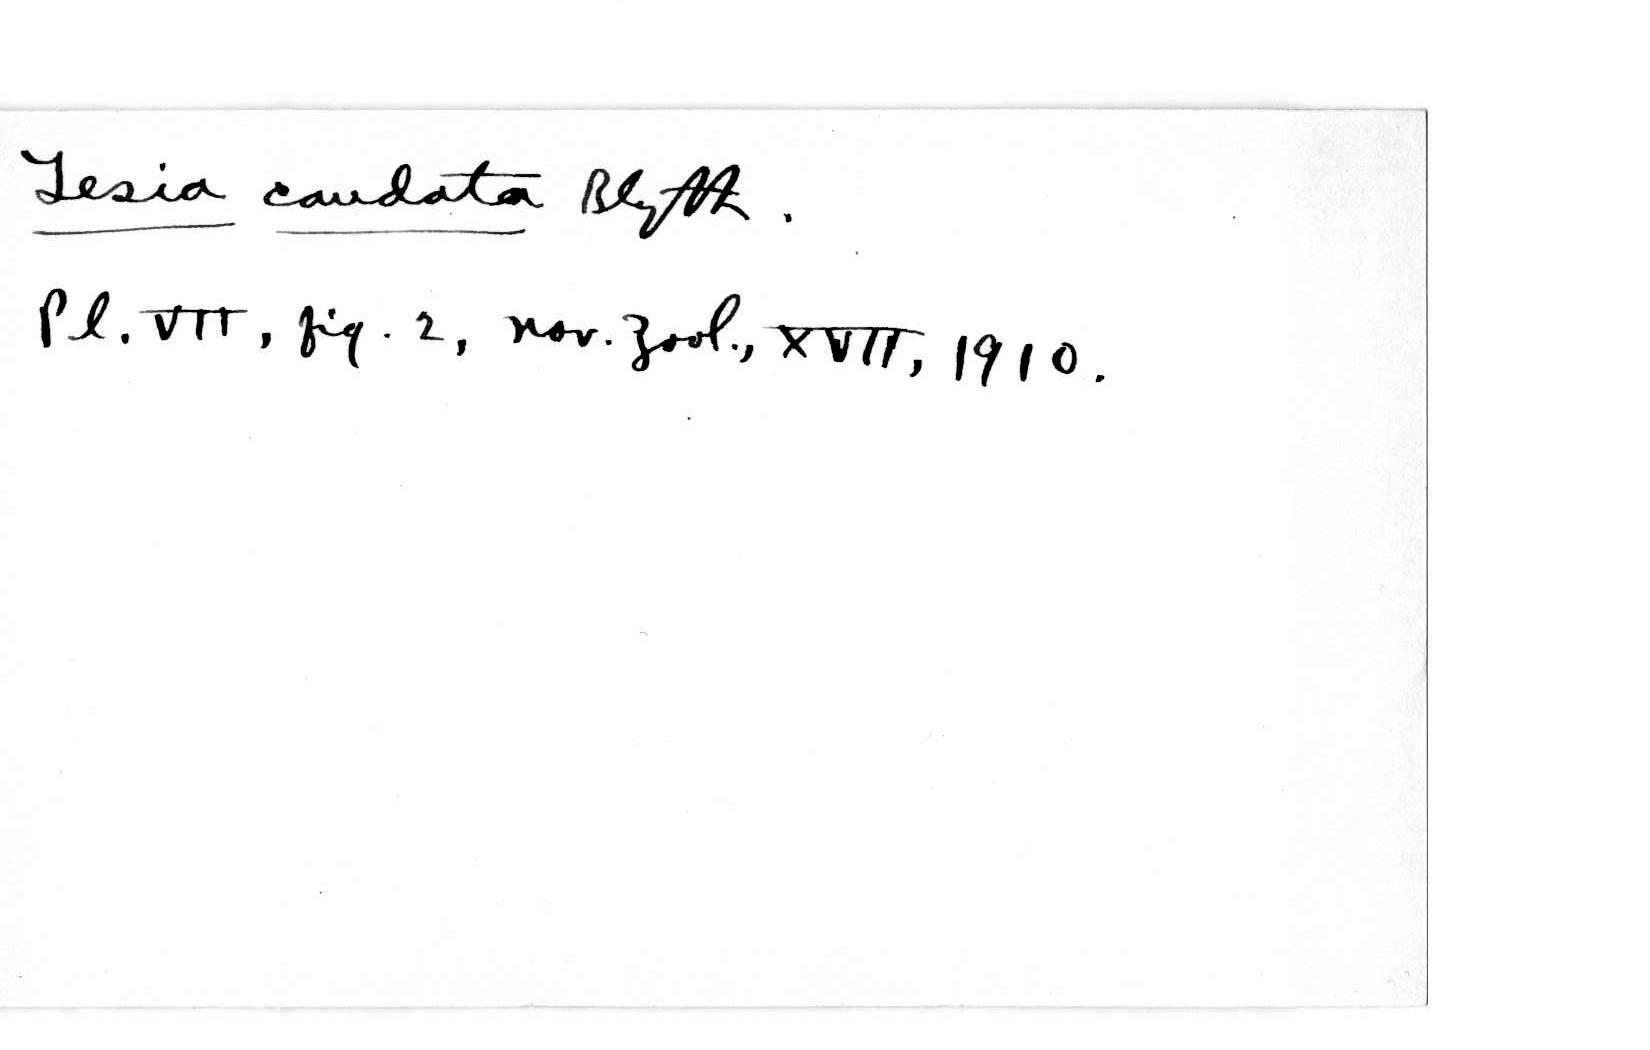 Tesia caudata Blyth.
Pl. VII, fig. 2, Nov. Zool., XVII, 1910.